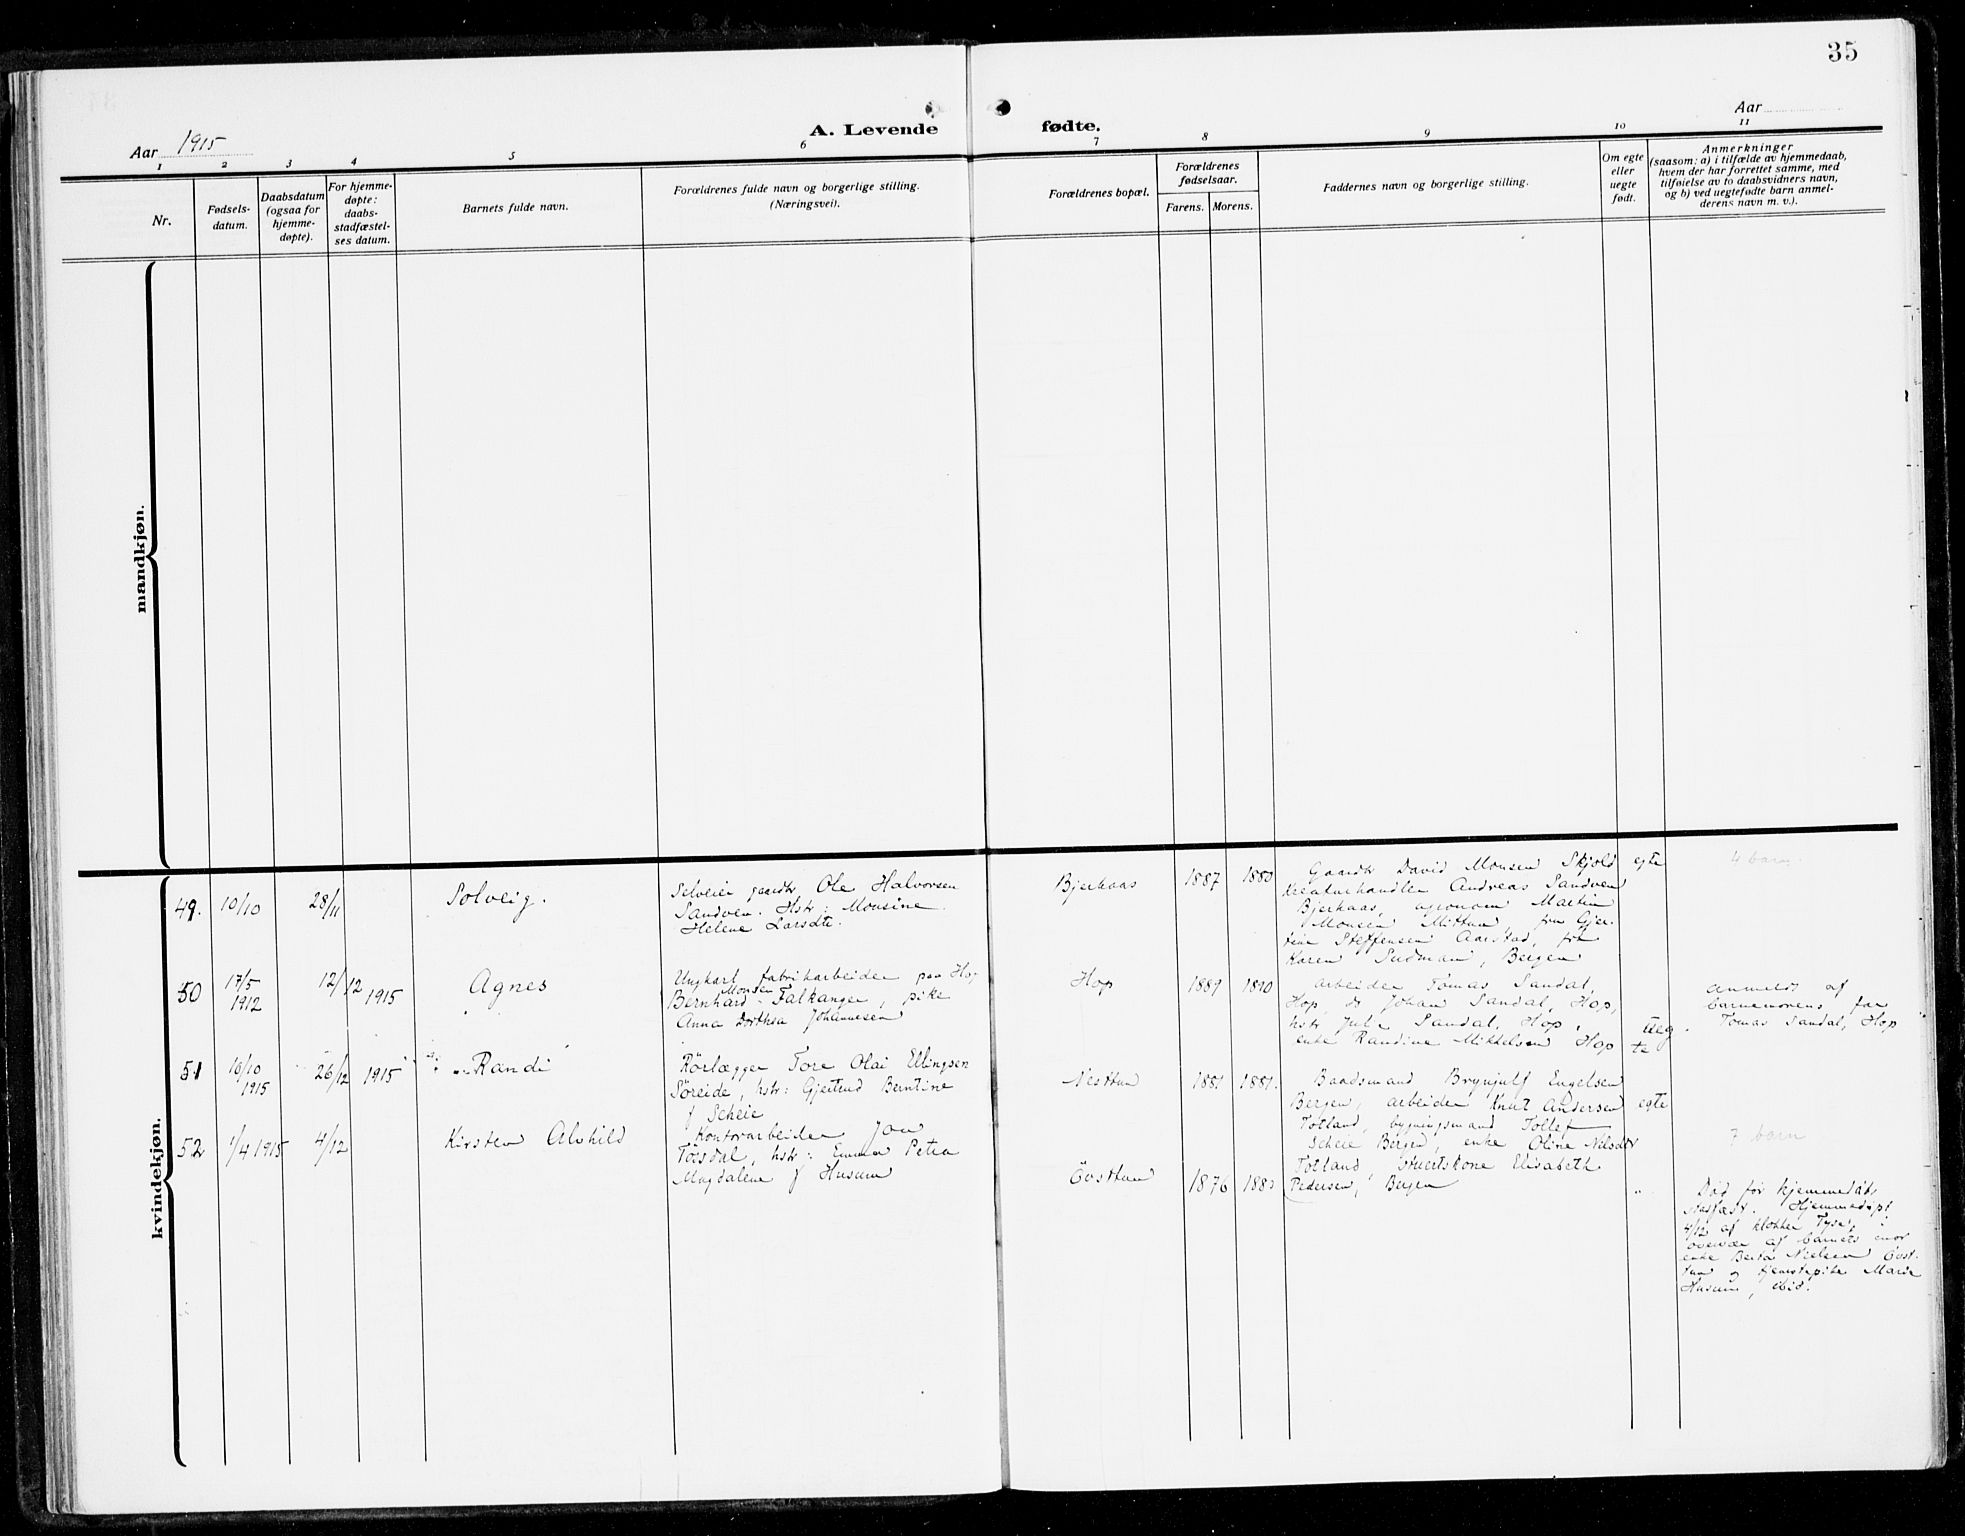 35
Aar 1915
A. Levende
fødte.
Aar
1
2
3
4
5
6
7
8
9
10
11
Nr.
Fødsels-
datum.
Daabsdatum
(ogsaa for
hjemme-
døpte).
For hjemme-
døpte:
daabs-
stadfæstel-
ses datum.
Barnets fulde navn.
Forældrenes fulde navn og borgerlige stilling.
(Næringsvei).
Forældrenes bopæl.
Forældrenes
fødselsaar.
Farens.
Morens.
Faddernes navn og borgerlige stilling.
Om egte
eller
uegte
født.
Anmerkninger
(saasom: a) i tilfælde av hjemmedaab,
hvem der har forrettet samme, med
tilføielse av to daabsvidners navn,
og b) ved uegtefødte barn anmel-
derens navn m. v.).
mandkjøn.
kvindekjøn.
49.
10/10
28/11
Solveig.
Selveier gaardbr Ole Halvorsen
Sandven. Hstr: Monsine
Helene Larsdtr.
Bjerhaas
1887
1880
Gaardbr David Monsen Skjold
Kreaturhandler Andreas Sandven
Bjerhaas, agronom Martin
Monsen Mittun, fru Gjer-
tine Steffensen Aarstad, frk
Karen Sudmann, Bergen
egte
4 barn.
50
17/5
1912
12/12 1915
Agnes
Ungkarl fabrikarbeider paa Hop
Bernhard Monsen Falkanger, pike
Anna Dorthea Johannesen
Hop
1889
1890
Arbeider Tomas Sandal,
Hop, do Johan Sandal, Hop,
hstr Julie Sandal, Hop,
enke Randine Mikkelsen Hop
Ueg
te
Anmeldt af
barnemorens far
Tomas Sandal, Hop
51
16/10
1915
26/12 1915
Randi
Rörlægger Tore Olai Ellingsen
Söreide, hstr: Gjertrud Berntine
f Scheie
Nesttun
1881
1881.
Baadsmand Brynjulf Engelsen
Bergen, arbeider Knut Andersen
Totland, bygningsmand Tollef
Scheie Bergen, enke Oline Nilsdtr
Totland, stuertskone Elisabeth
Pedersen, Bergen
egte
7 barn
52
1/4 1915
4/12
Kirsten Alvhild
Kontorarbeider Jon
Torsdal, hstr: Emma Petra
Magdalene f Husum
Övsttun
1876
"
Död för hjemmedåb
stadfæst. Hjemmedøpt
4/12 af klokker Tyse, i
overvær af barnets mor
enke Berta Nielsen Övst-
tun og tjenestepike Marie
Husum, ibid.